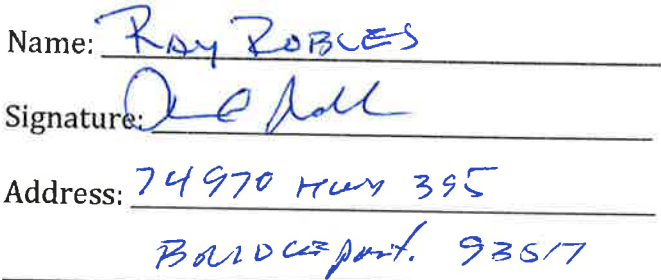 Name: Ray Robles
Signature:
Address: 74970 Hwy 395
93517